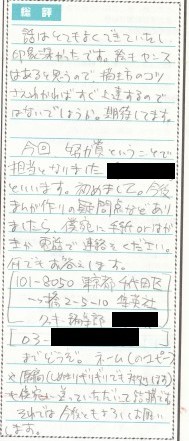 総評
話はとてもよくできていたし、
印象深かったです。絵もセンス
はあると思うので、描き方のコツ
さえわかればすぐ上達するので
はないでしょうか。期待してます。
今回、努力賞ということで
担当になりました
といいます。初めまして。今後
まんが作りの疑問点などあり
ましたら、僕宛に手紙orはが
きか電話で連絡をください。
何でもお答えします。
101-8050 東京都千代田区
一ツ橋2-5-10 集英社
編集部
03-
までどうぞ。ネーム(のコピー)
や原稿(しめきりギリギリでも
送っていただいて結構です。
それでは今後もよろしくお願い
します。